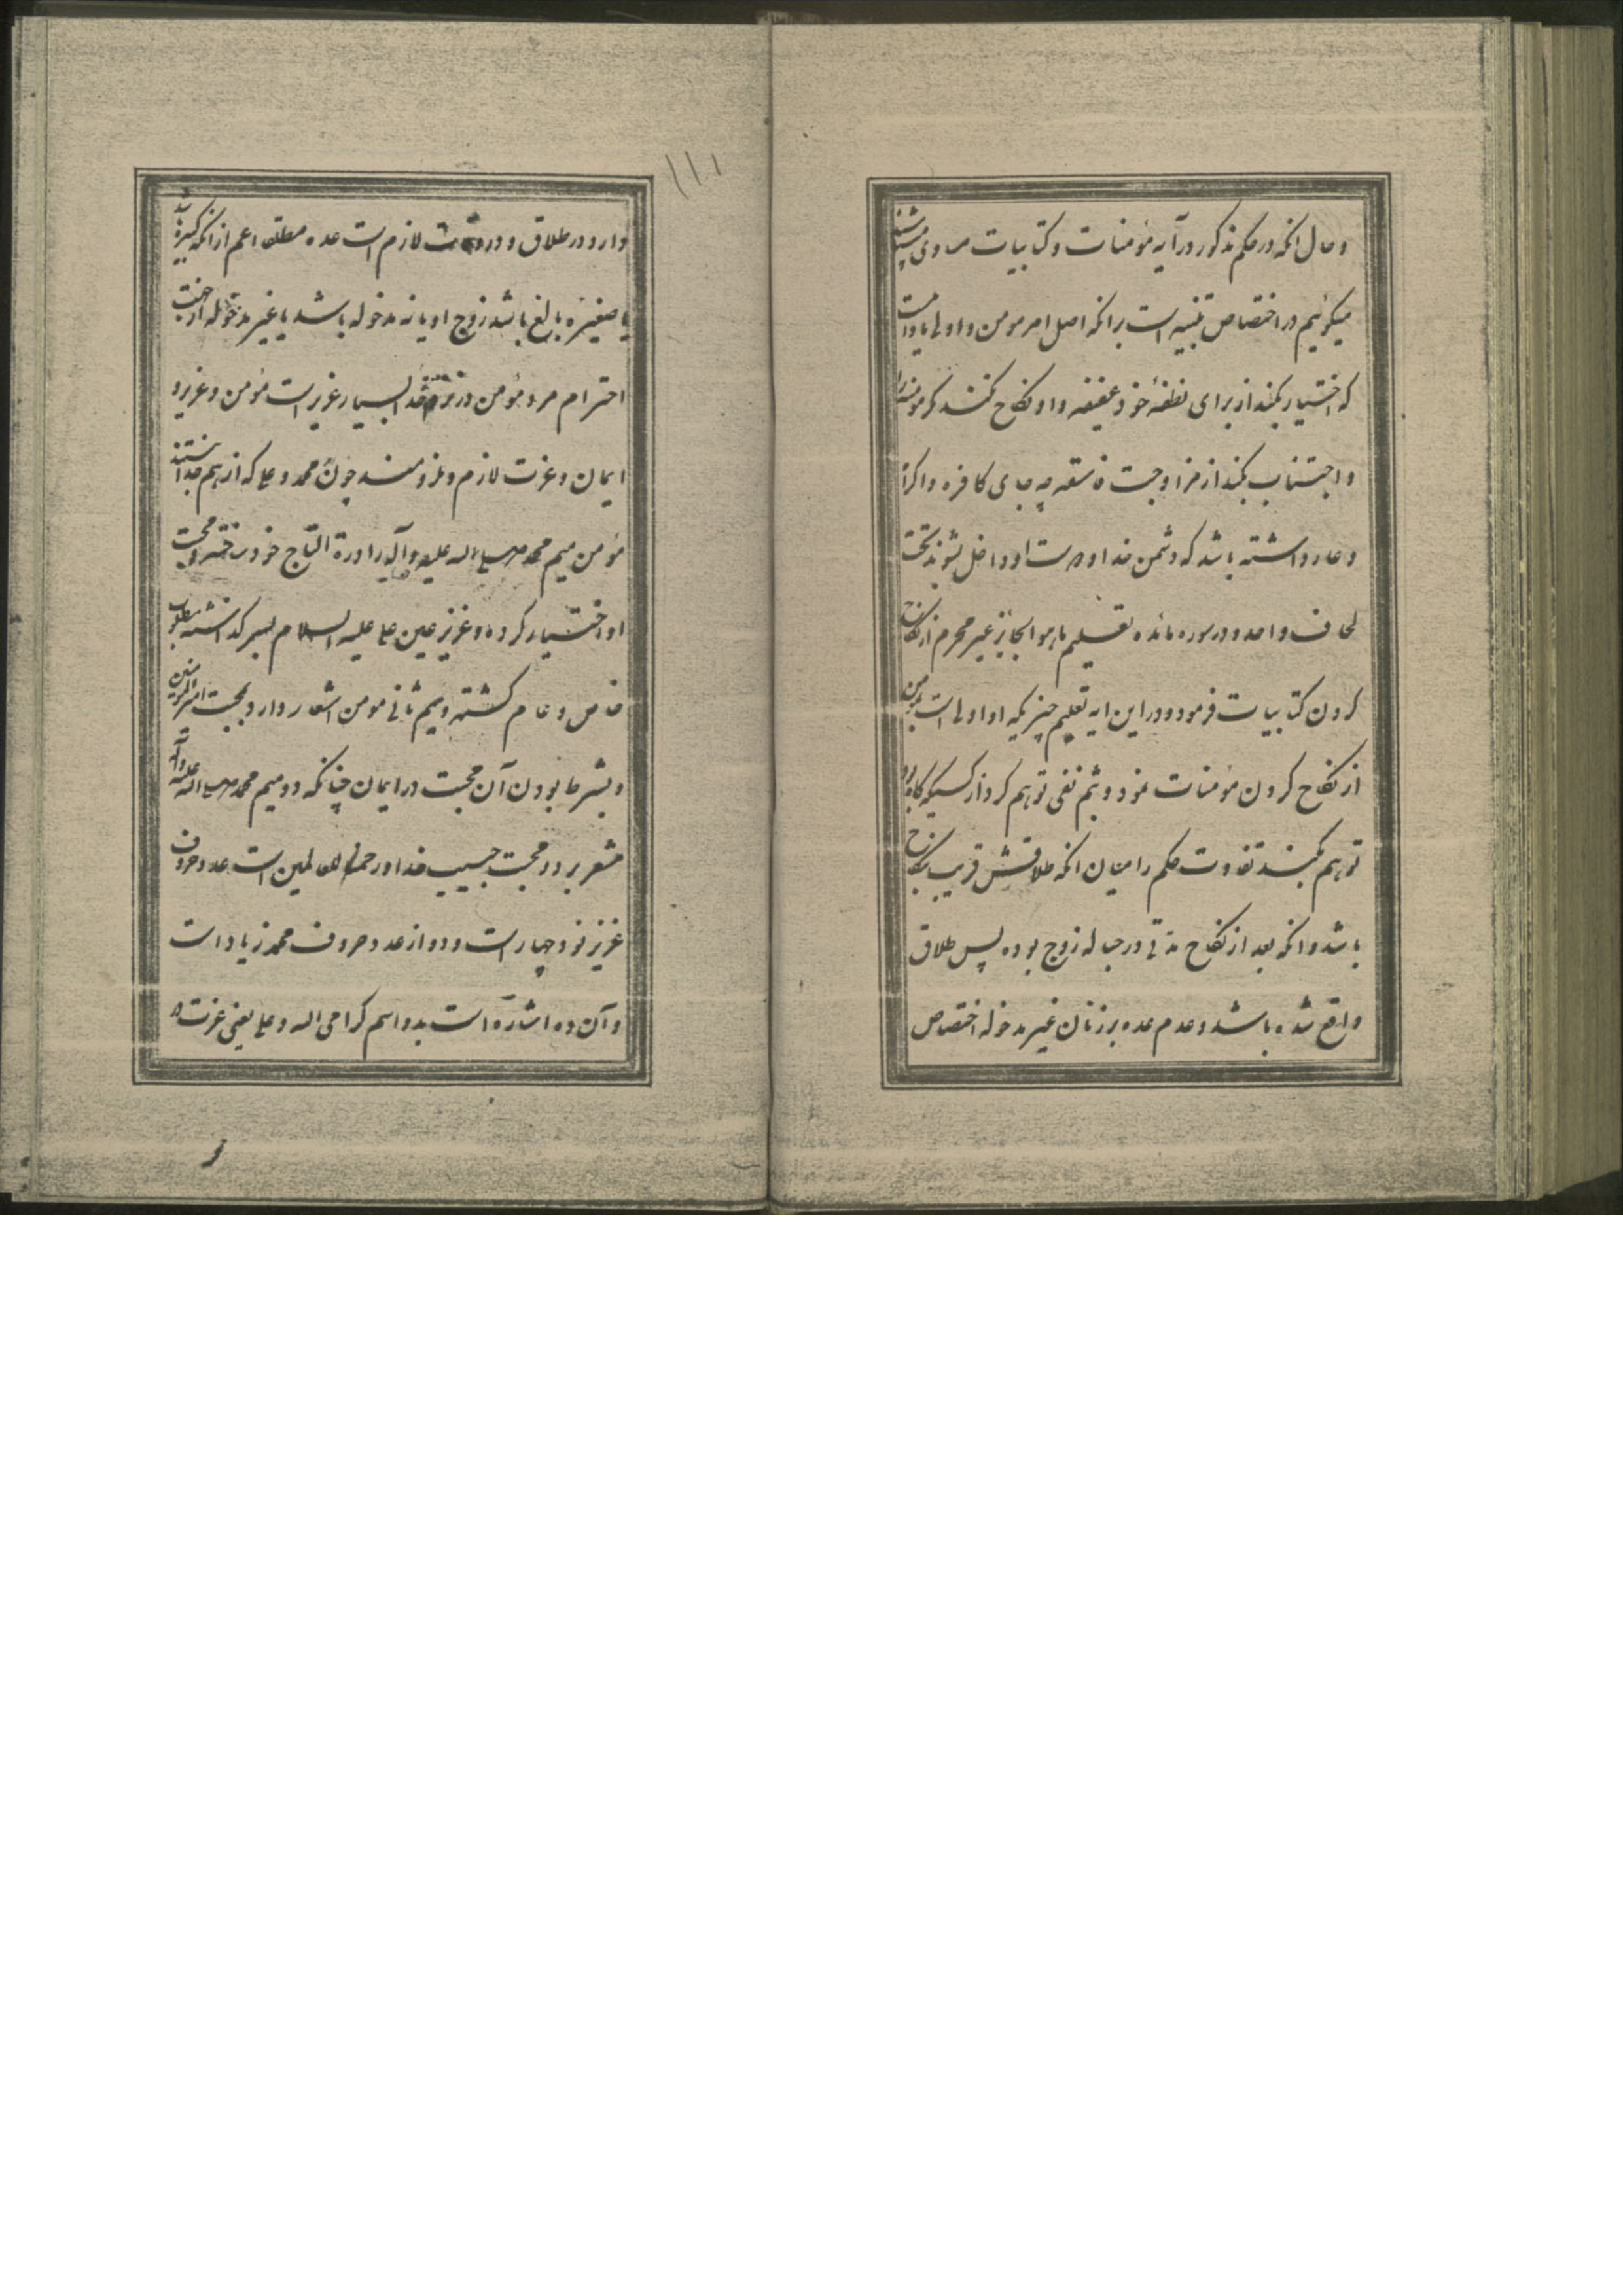 و حال انکه در حکم مذکور در آیه مؤمنات و کتابیات مساوی میباشند
میگوئیم در اختصاص تنبیه است برانکه اصل امر مومن و اولی باو انست
که اختیار بکند از برای نطفهٔ خود عفیفه و او نکاح نکند مکر مومنه را
و اجتناب بکند از مزاوجت فاسقه چه جای کافره و اکراه
و عار داشته باشد که دشمن خدا و دوست او داخل شوند تحت
لحاف واحد و در سوره مائده تعلیم ما هو الجایز غیر محرم از نکاح
کردن کتابیات فرمود و در این ایه تعلیم چیزیکه او اولی است بمؤمن
از نکاح کردن مؤمنات نمود و بثم نفی توهم کرد از کسیکه کاه
توهم بکند تفاوت حکم را میان انکه طلاقش قریب بنکاح
باشد و انکه بعد از نکاح مدتی در حباله زوج بوده پس طلاق
واقع شده باشد و عدم عده بر زنان غیر مدخوله اختصاص
۱۱۱
دارد در طلاق و در وفات لازم است عده مطلقا اعم از انکه کبیره باشد
یا صغیره بالغ باشد زوج او یا نه مدخوله باشد یا غیر مدخوله از جهت
احترام مرد مؤمن در نزد خدا بسیار عزیز است مؤمن و عزیز و
ایمان و عزت لازم و ملزومند چون محمد و علی که از هم جدا نیستند
مؤمن میم محمد صلی الله علیه و آله را درة التاج خود ساخته و محبت
او اختیار کرده و عزیز عین علی علیه السلام بسر کذاشته مطلوب
خاص و عام کشته و میم ثانی مومن اشعار دارد بمحبت امیر المؤمنین
و بشرط بودن آن محبت در ایمان چنانکه دو میم محمد صلی الله علیه وآله
مشعر بر دو محبت حبیب خدا و رحمة للعالمین است عدد حروف
عزیز نود چهار است و دو از عدد حروف محمد زیاد است
و آن دو اشاره است بدو اسم کرامی الله و علی یعنی عزت